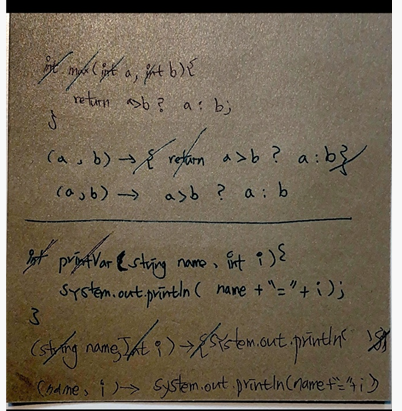 int max(int a, int b){
return a>b ? a : b;
}
(a, b) → { return a>b ? a:b}
(a,b) → a>b ? a : b
int printVar (string name, int i){
system.out.println( name +"="+ i);
}
(string name, int i) → {system.out.println( )}
(name, i) → system.out.println(name+"="+i)